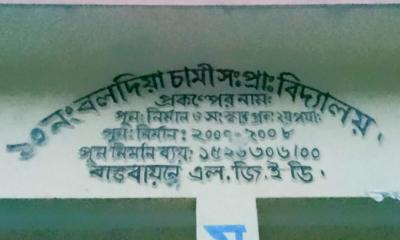 ১৩ নং বলদিয়া চামী সঃ প্রাঃ বিদ্যালয়.
প্রকল্পের নামঃ
পুনঃ নির্মান ও সংস্কার প্রকঃ ২য় পর্যাঃ
পুনঃ নির্মান: ২০০৭-২০০৮
পুন নির্মান ব্যয়: ১৫২৬৩০৬/০০
বাস্তবায়নে এল.জি.ই ডি.